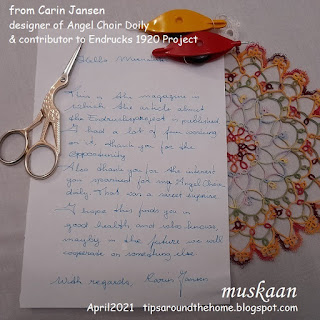 from Carin Jansen
designer of Angel Choir Doily
& contributor to Endrucks 1920 Project
Hello Muskaan
This is the magazine in
which the article about
the Endrucksproject is published
I had a lot of fun working
on it, thank you for the
opportunity.
Also thank you for the interest
you showed for my Angel Choir
doily. That was a sweet surprise
I hope this finds you in
good health and who knows,
maybe in the future we will
cooperate on something else.
With regards, Karin Jansen
muskaan
April2021 tipsaroundthehome.blogspot.com